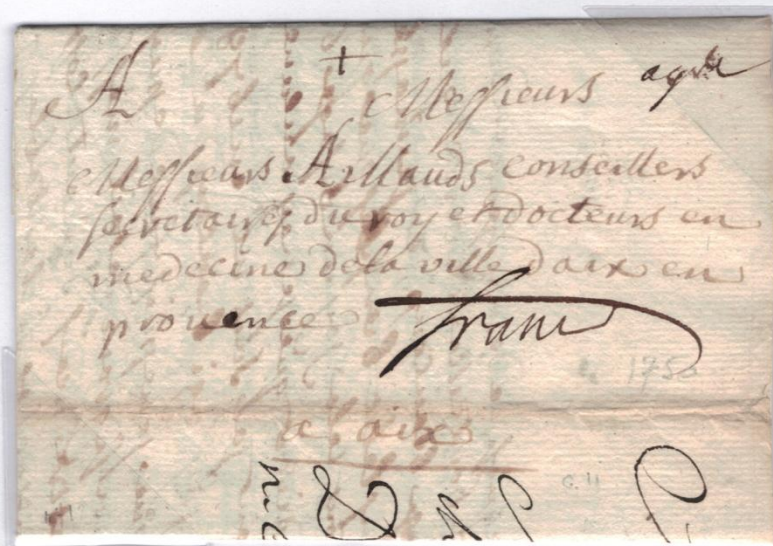 +
A Messieurs
Messieurs Aillauds Conseillers
secretaires du roy et docteurs en
medecine de la ville d'aix en
provence franc
1750
a aix